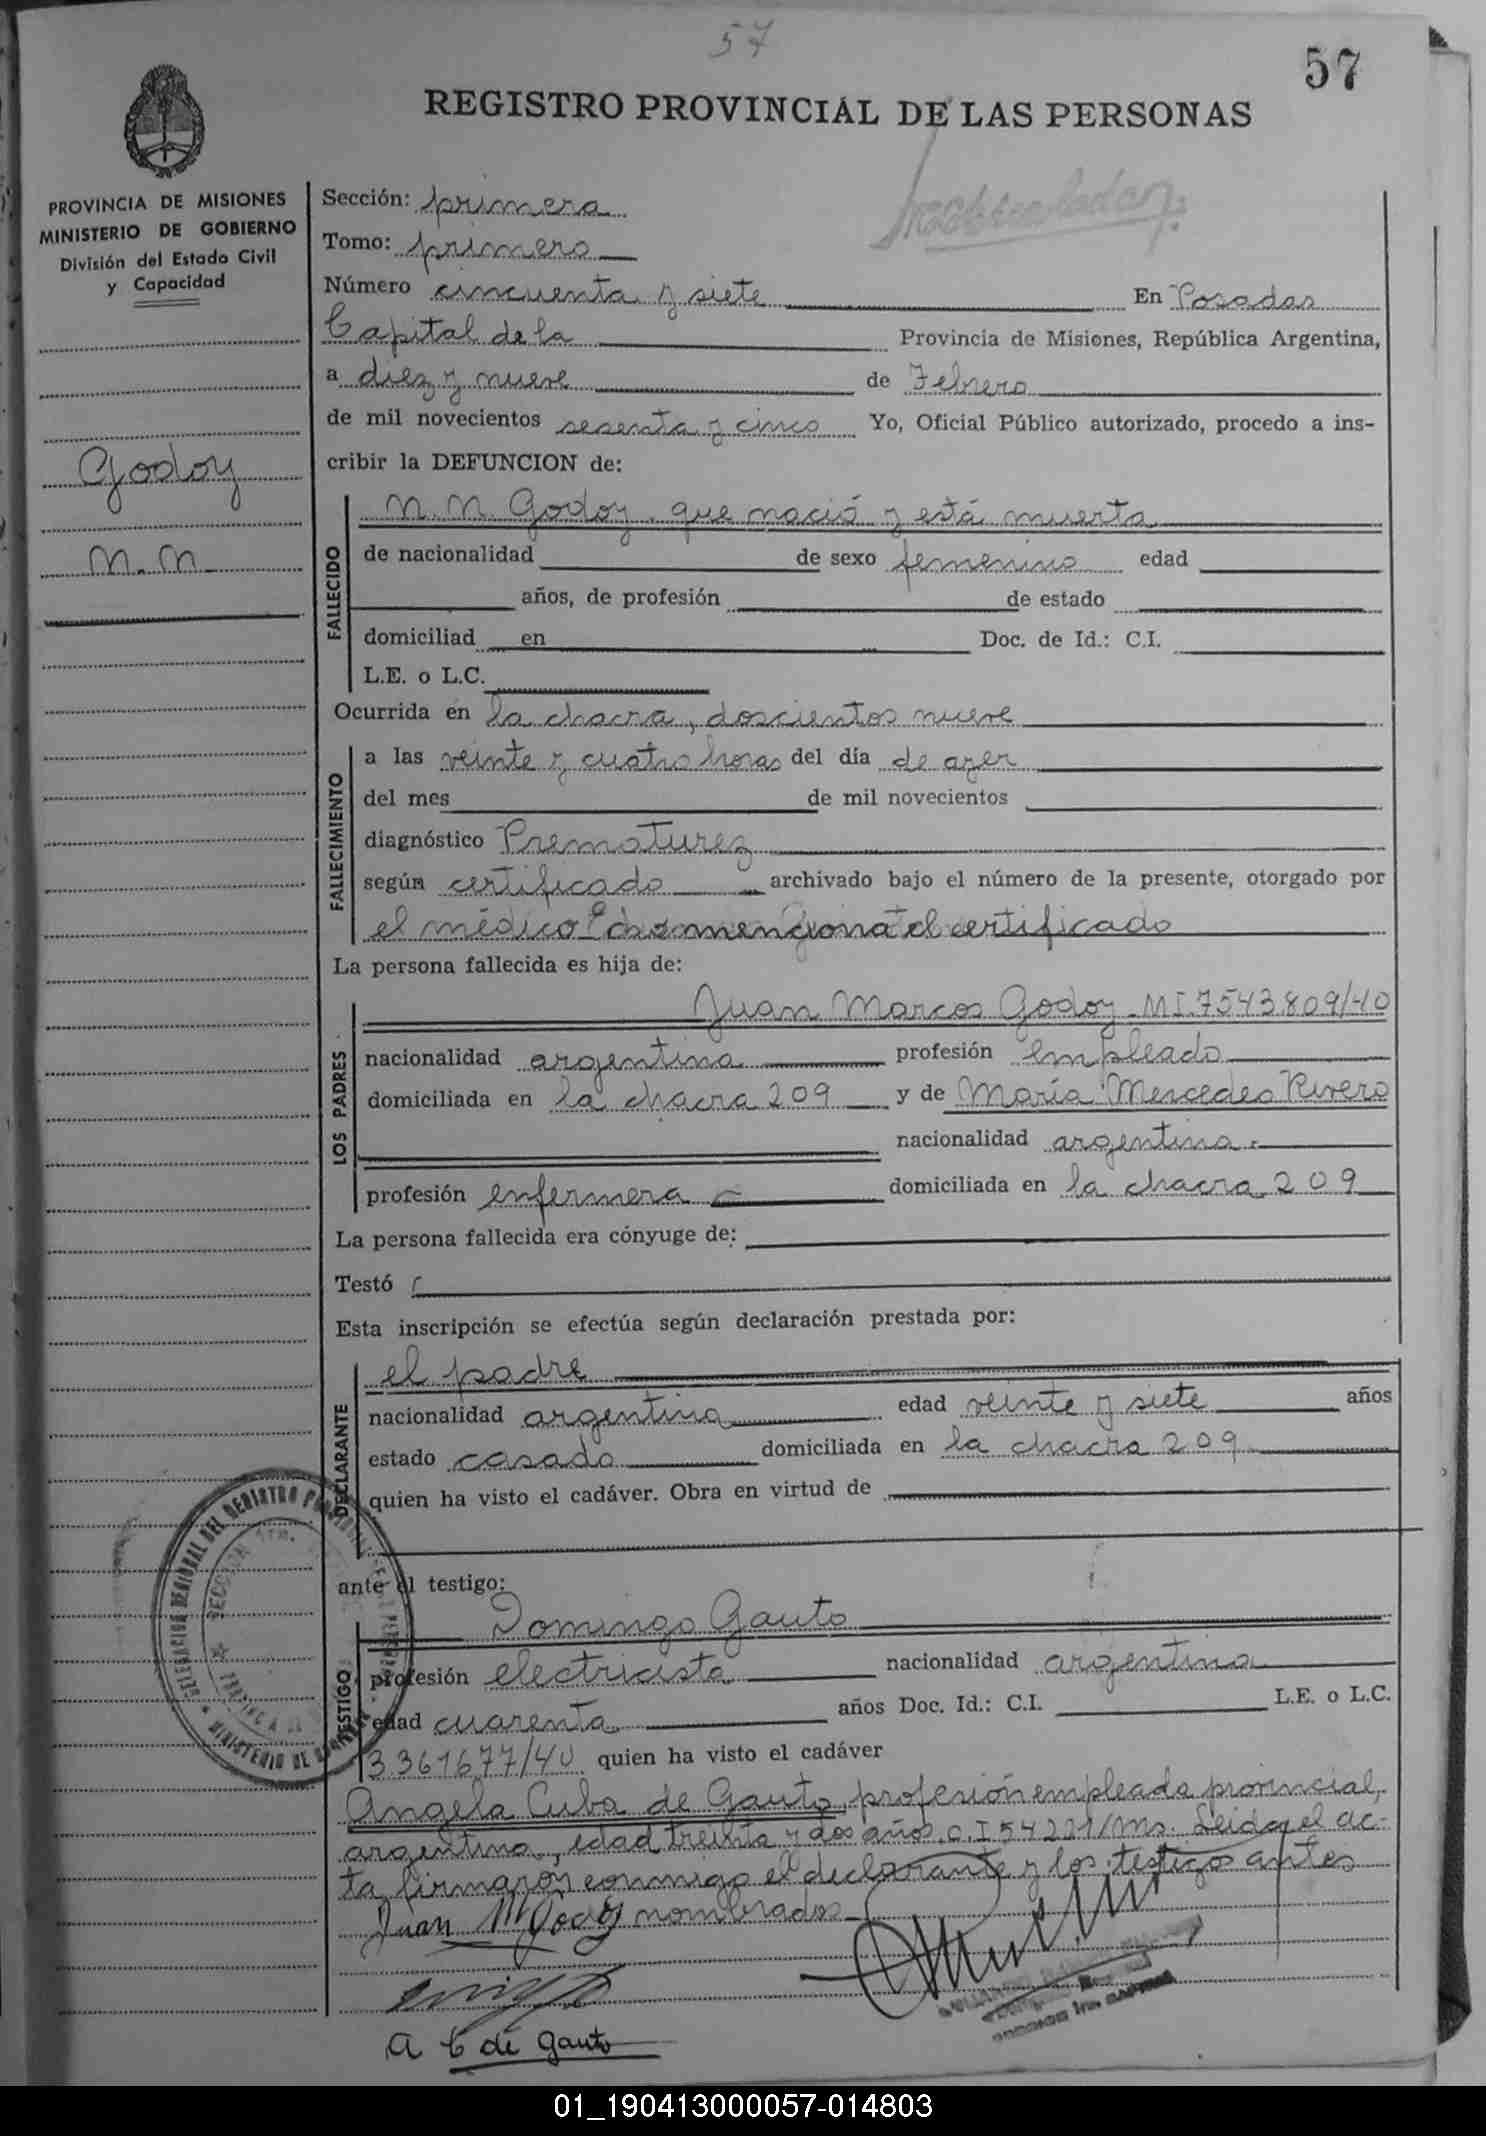 57
57
REGISTRO PROVINCIAL DE LAS PERSONAS
PROVINCIA DE MISIONES
MINISTERIO DE GOBIERNO
División del Estado Civil
y Capacidad
Godoy
N. N.
Sección: primera
Tomo: primero
Número cincuenta y siete En Posadas
Capital de la Provincia de Misiones, República Argentina,
a diez y nueve de Febrero
de mil novecientos sesenta y cinco Yo, Oficial Público autorizado, procedo a ins-
cribir la DEFUNCION de:
FALLECIDO
N. N. Godoy, que nació y está muerta
de nacionalidad de sexo femenino edad
años, de profesión de estado
domiciliad en Doc. de Id.: C.I.
L.E. o L.C.
Ocurrida en la chacra, doscientos nueve
FALLECIMIENTO
a las veinte y cuatro horas del día de ayer
del mes de mil novecientos
diagnóstico Prematurez
según certificado archivado bajo el número de la presente, otorgado por
el médico menciona el certificado
La persona fallecida es hija de:
LOS PADRES
Juan Marcos Godoy M.I. 7543.809/40
nacionalidad argentina profesión empleado
domiciliada en la chacra 209 y de María Mercedes Rivero
nacionalidad argentina
profesión enfermera domiciliada en la chacra 209
La persona fallecida era cónyuge de:
Testó
Esta inscripción se efectúa según declaración prestada por:
DECLARANTE
el padre
nacionalidad argentina edad veinte y siete años
estado casado domiciliada en la chacra 209
quien ha visto el cadáver. Obra en virtud de
ante el testigo:
TESTIGO
Domingo Gauto
profesión electricista nacionalidad argentina
edad cuarenta años Doc. Id.: C.I. L.E. o L.C.
3.361677/40 quien ha visto el cadáver
Angela Cuba de Gauto, profesión empleada provincial,
argentina, edad treinta y dos años, C.I 54221/Ms. Leida el ac-
ta, firmaron conmigo el declarante y los testigos antes
nombrados
Juan M Godoy
A C de Gauto
DELEGACION REGIONAL DEL REGISTRO
SECCION
MINISTERIO DE
01_190413000057-014803